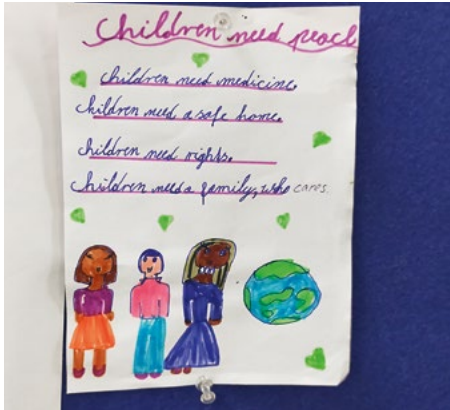 Children need peace
children need medicine.
children need a safe home.
children need rights.
children need a family, who cares.